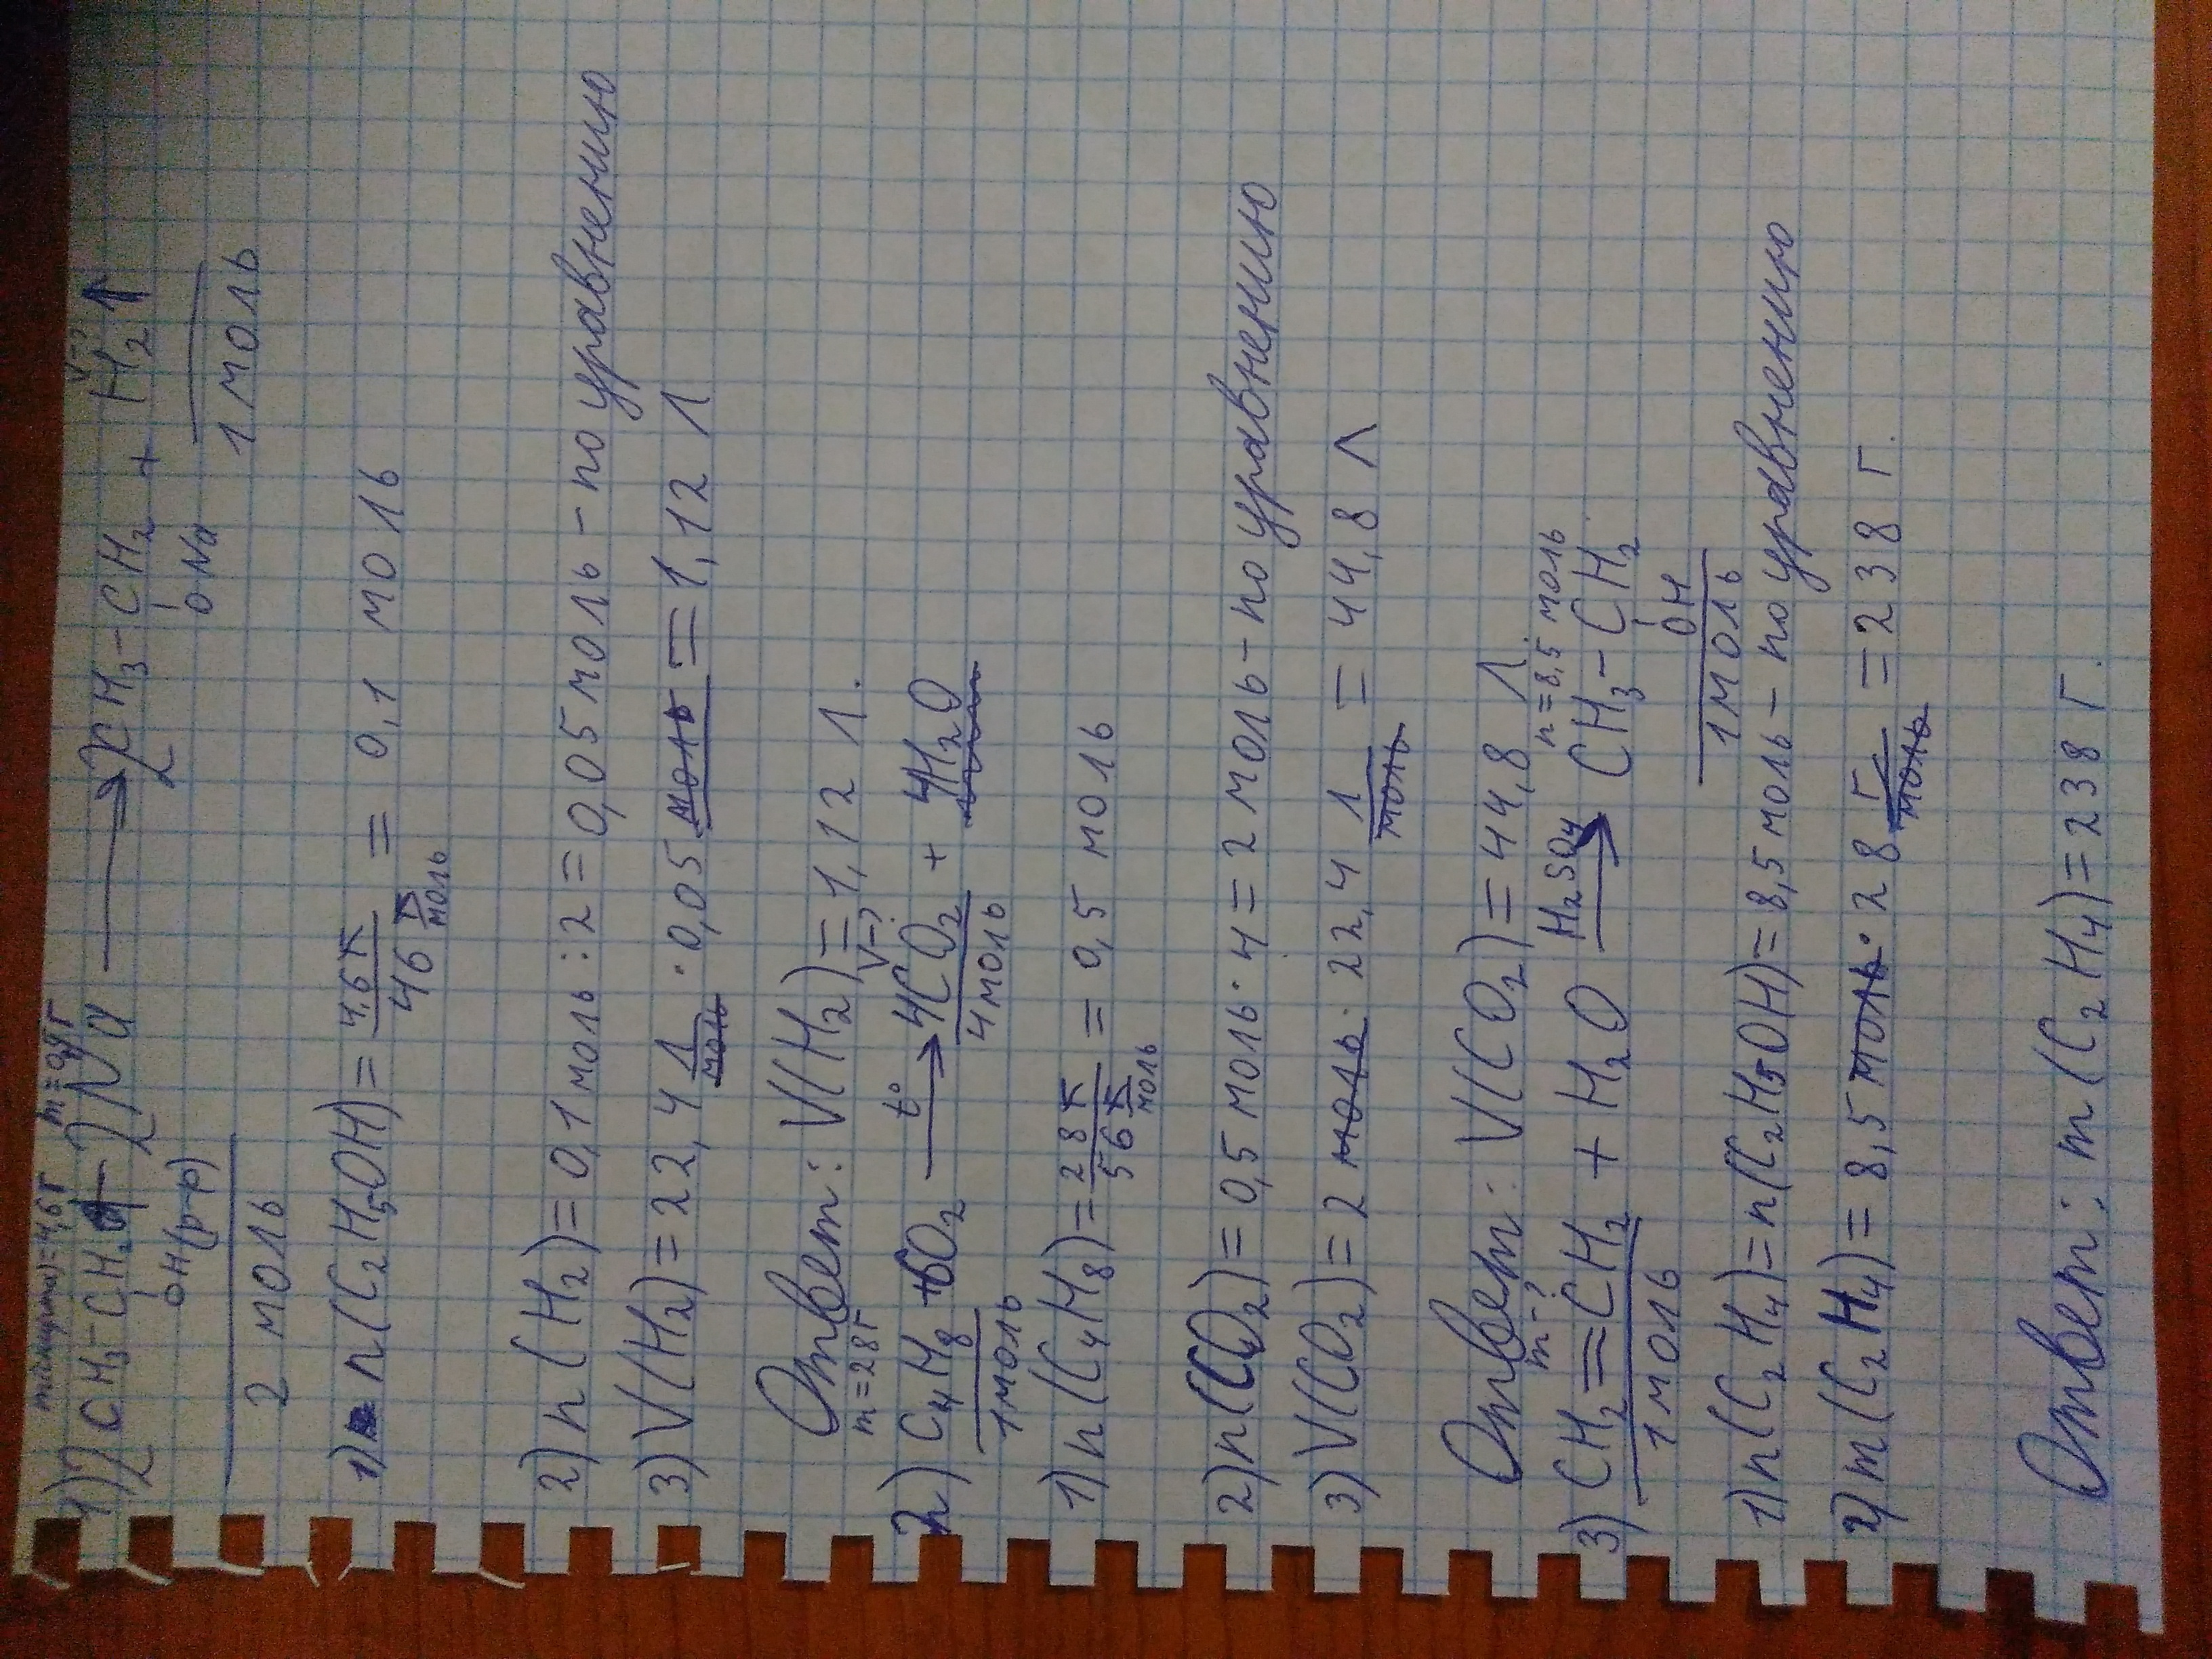 m = 4,6 г
1) 2CH₃-CH₂ + 2Na ⟶ 2CH₃-CH₂ + H₂↑
OH(р-р)
ONa
V-?
2 моль
1 моль
1) n(C₂H₅OH) = 4,6 г / 46 г/моль = 0,1 моль
2) n(H₂) = 0,1 моль : 2 = 0,05 моль - по уравнению
3) V(H₂) = 22,4 л/моль · 0,05 моль = 1,12 л
Ответ: V(H₂) = 1,12 л.
m = 28 г
V-?
2) C₄H₈ + 6O₂ t° ⟶ 4CO₂ + 4H₂O
1 моль
4 моль
1) n(C₄H₈) = 28 г / 56 г/моль = 0,5 моль
2) n(CO₂) = 0,5 моль · 4 = 2 моль - по уравнению
3) V(CO₂) = 2 моль · 22,4 л/моль = 44,8 л
Ответ: V(CO₂) = 44,8 л
m-?
n = 8,5 моль
3) CH₂=CH₂ + H₂O H₂SO₄ ⟶ CH₃-CH₂
OH
1 моль
1 моль
1) n(C₂H₄) = n(C₂H₅OH) = 8,5 моль - по уравнению
2) m(C₂H₄) = 8,5 моль · 28 г/моль = 238 г.
Ответ: m(C₂H₄) = 238 г.